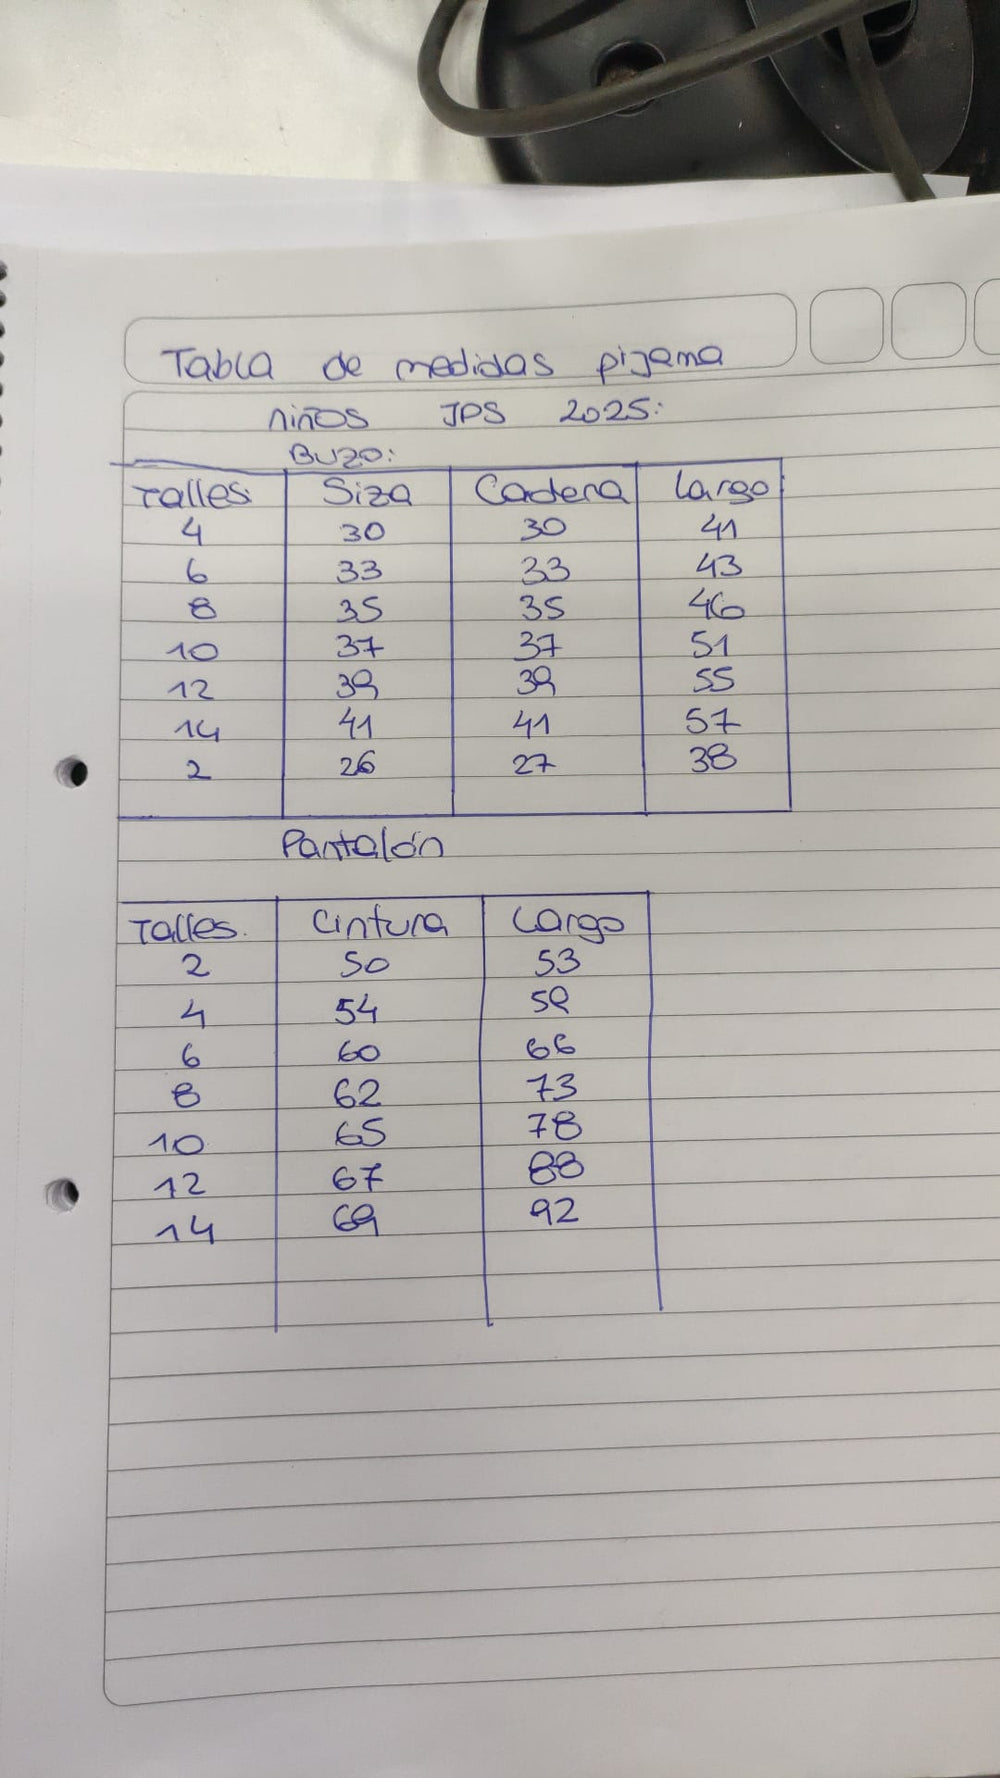 Tabla de medidas pijama
niños JPS 2025:
Buzo:
Talles Siza Cadera Largo
4 30 30 41
6 33 33 43
8 35 35 46
10 37 37 51
12 39 39 55
14 41 41 57
2 26 27 38
Pantalón
Talles. Cintura Largo
2 50 53
4 54 59
6 60 66
8 62 73
10 65 78
12 67 88
14 69 92